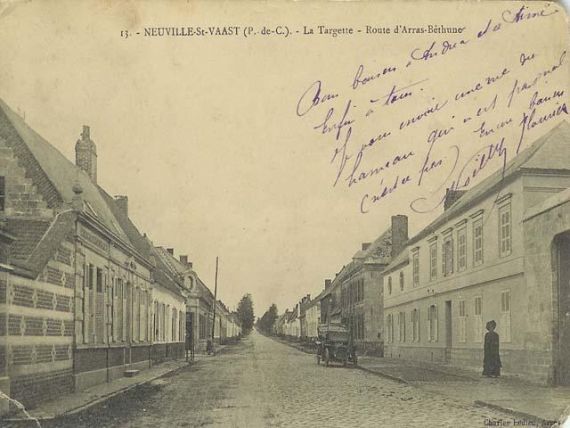 13. - NEUVILLE-St-VAAST (P.-de-C.). - La Targette - Route d'Arras-Béthune
Bons baisers à Andréa et à
Enfin à tous.
je vous envoie une vue du
hameau qui n'est pas mal
n'est-ce pas. Encore bons
Charles Ledieu, Arras